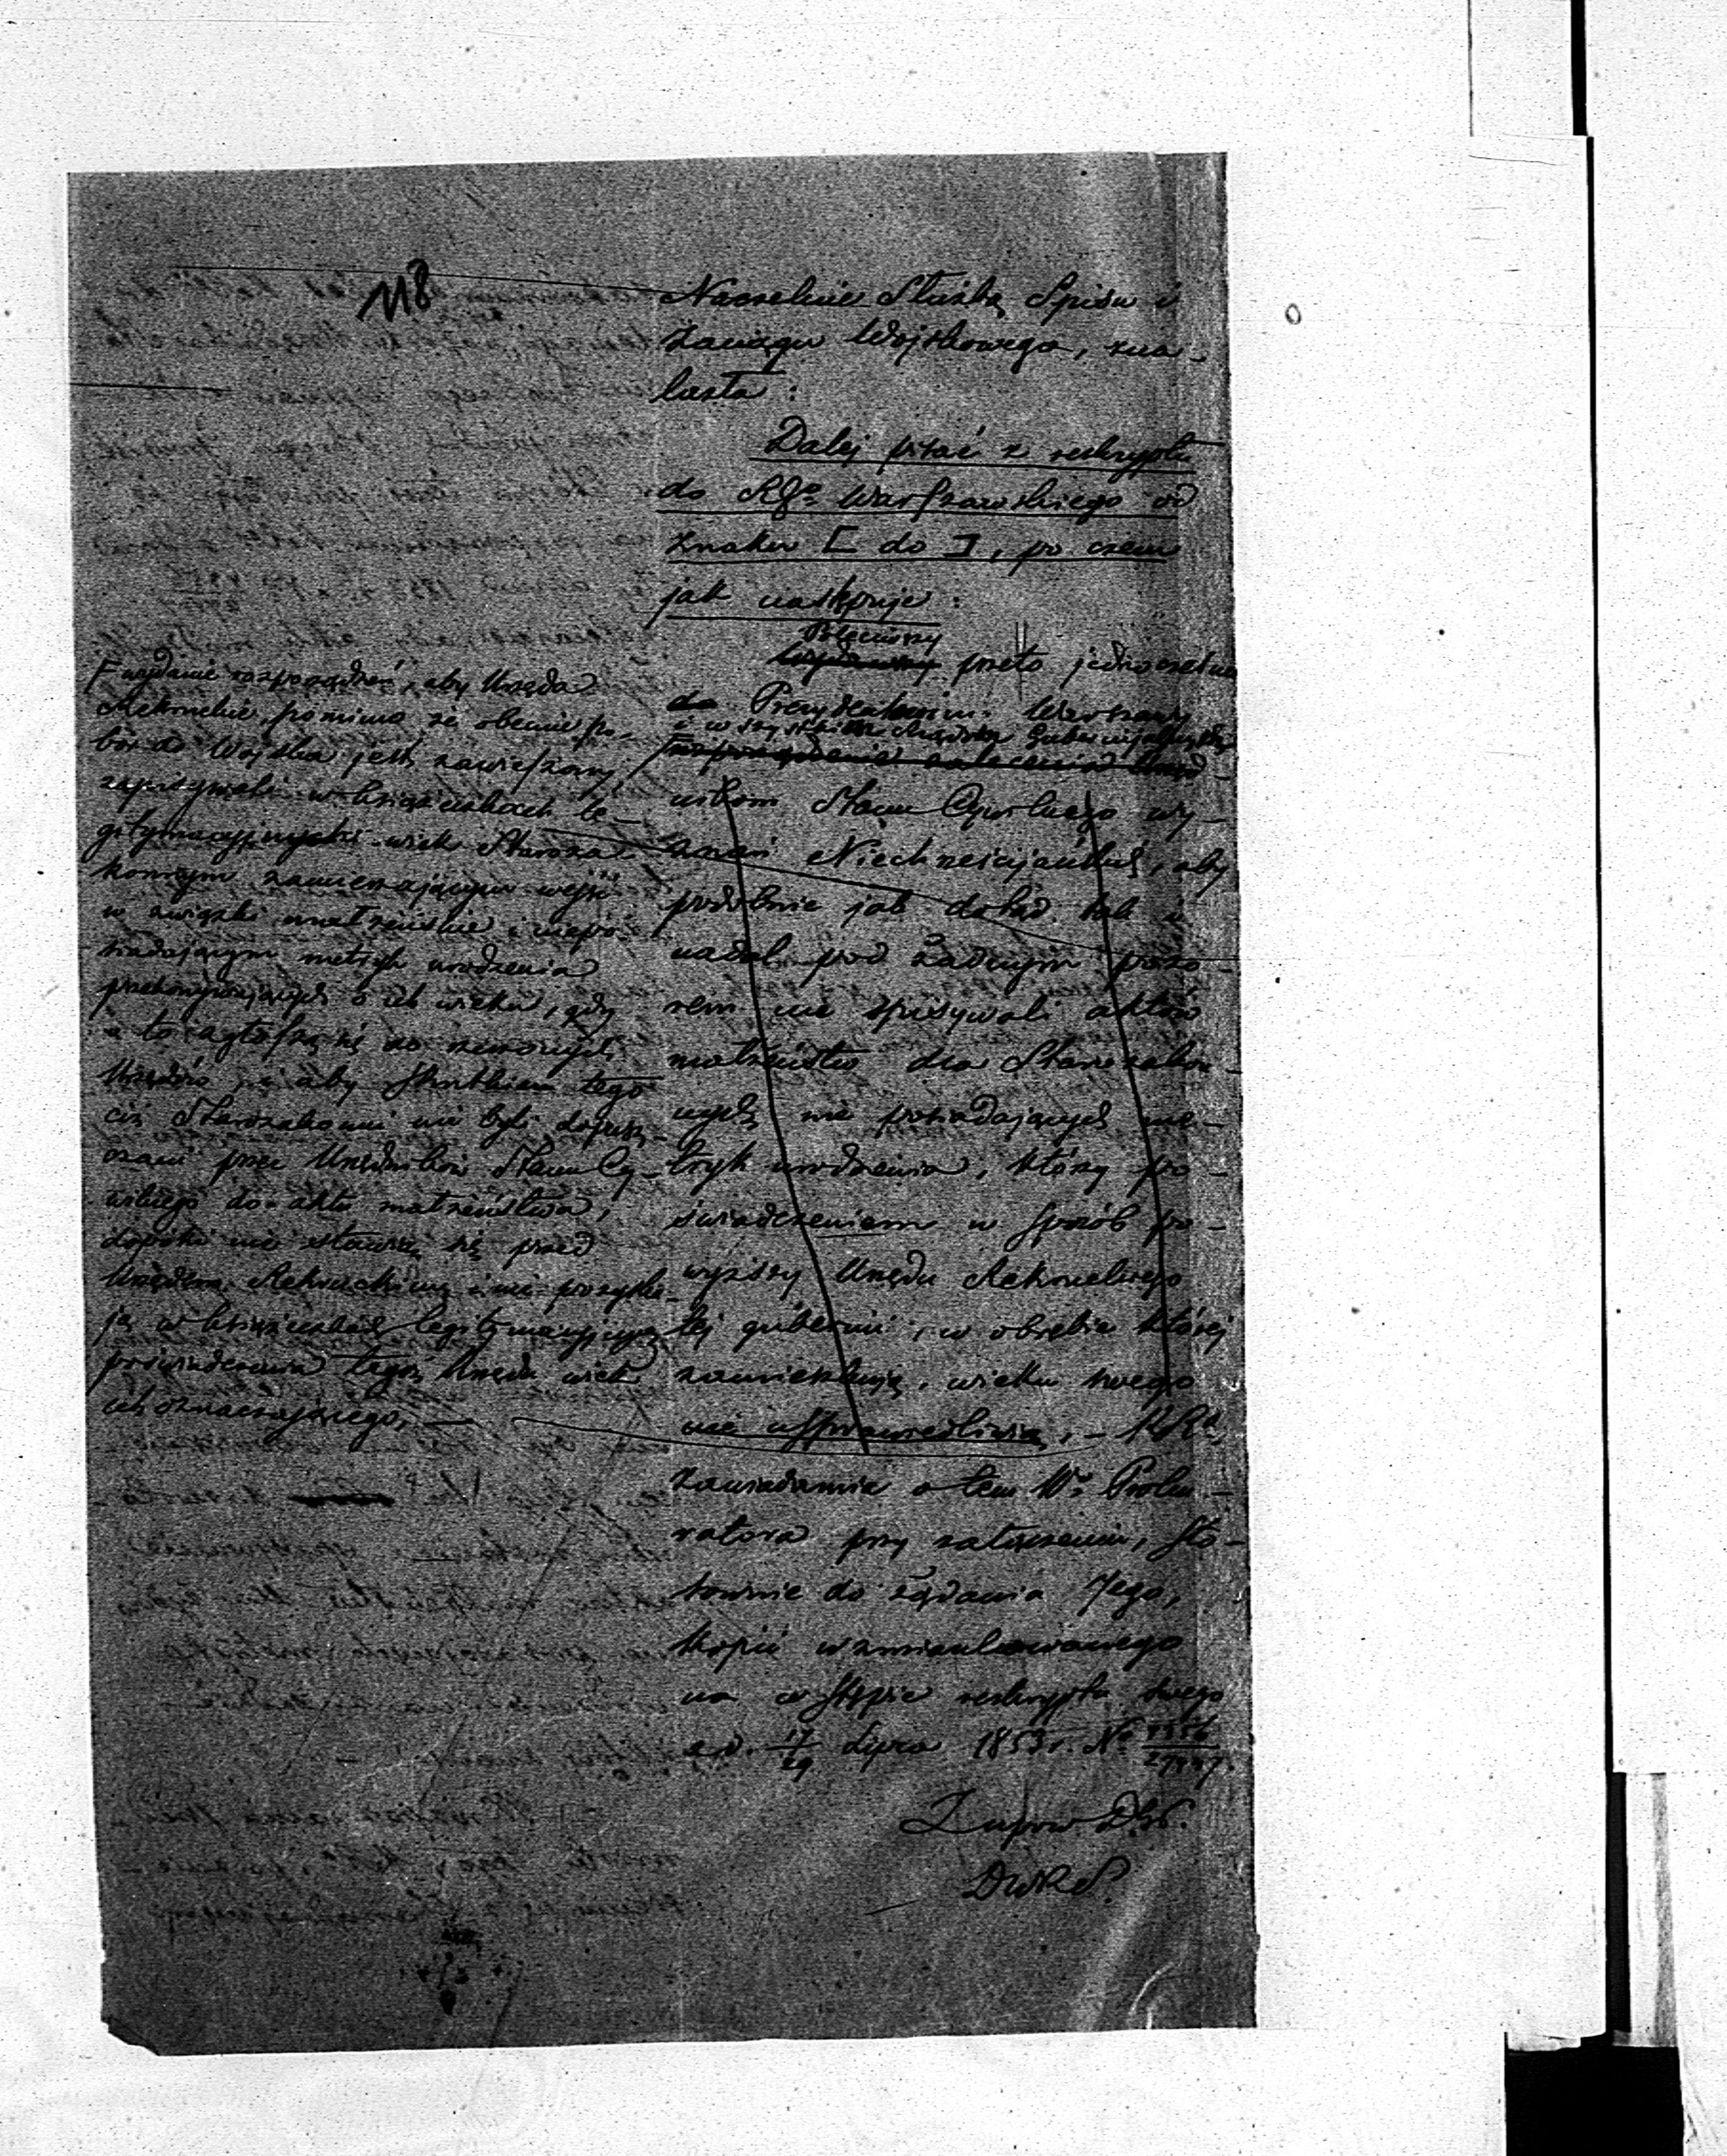 118
Naczelnie Służbę Spisu i
Zaciągu Wojskowego, zna-
lazła:
Dalej pisać z reskryptu
do RGo Warszawskiego od
znaku [ do ], po czem
jak następuje:
Poleciwszy
przeto jednocześnie
Prezydentowi m. Warszawy
i wszystkim Rządom Gubernijalnym
nikom Stanu Cywilnego wy-
znań Niechrześcijańskich, aby
podobnie jak dotąd tak i
nadal pod żadnym pozo-
rem nie spisywali aktów
małżeństw dla Starozakon-
nych nie posiadających me-
tryk urodzenia, którzy po-
świadczeniem w sposób po-
wyższy Urzędu Rekruckiego
tej gubernii, w obrębie której
zamieszkują, wieku swego
nie usprawiedliwią, - KR
zawiadamia o tem Wo Proku-
ratora przy załączeniu, sto-
sownie do żądania Jego,
kopii wzmiankowanego
na wstępie reskryptu swego
z d. 17/29 Lipca 1853 r. No
wydanie rozporządzeń, aby Urzęda
Rekruckie, pomimo że obecnie po-
bór do Wojska jest zawieszony,
zapisywali w książeczkach le-
gitymacyjnych wiek Staroza-
konnym zamierzającym wejść
w związki małżeńskie i niepo-
siadającym metryk urodzenia
przekonywających o ich wieku, gdy
o to zgłoszą się do rzeczonych
Urzędów, i aby skutkiem tego
ciż Starozakonni nie byli dopusz-
czani przez Urzędników Stanu Cy-
wilnego do aktu małżeństwa,
dopóki nie stawią się przed
Urzędem Rekruckim i nie pozyska-
ją w książeczkach legitymacyjnych
poświadczenia tegoż Urzędu wiek
ich oznaczającego,